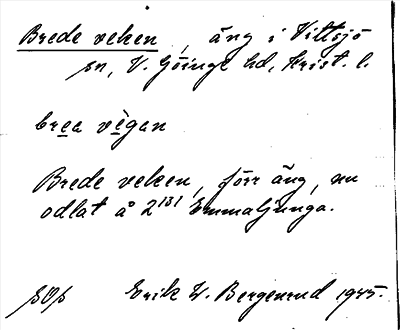 Brede veken, äng i Vittsjö
sn, V. Göinge hd, Krist. l.
brea vēgan
Brede veken, förr äng, nu
odlat å 2¹³¹ Emmaljunga.
Erik W. Bergenrud 1945.